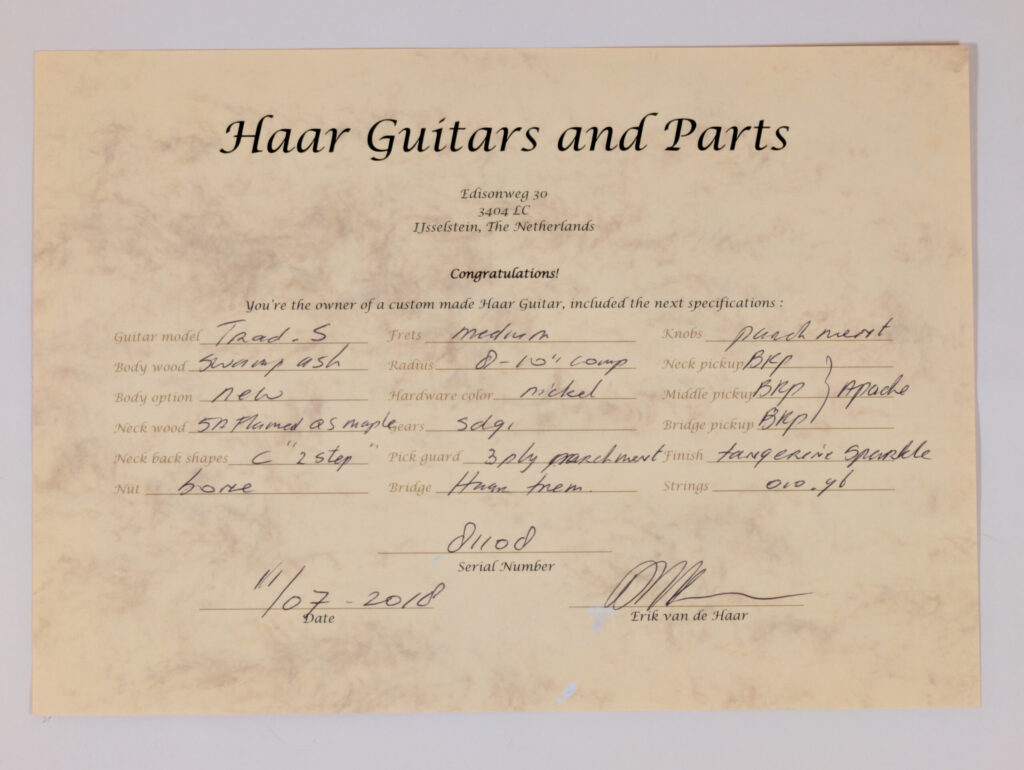 Haar Guitars and Parts
Edisonweg 30
3404 LC
IJsselstein, The Netherlands
Congratulations!
You're the owner of a custom made Haar Guitar, included the next specifications :
Guitar model Trad. S Frets medium Knobs parchment
Body wood Swamp ash Radius 8-10" comp Neck pickup BKP
Body option new Hardware color nickel Middle pickup BKP } Apache
Neck wood 5A Flamed as maple Gears sdgi Bridge pickup BKP
Neck back shapes C "2 step" Pick guard 3 ply parchment Finish tangerine Sparkle
Nut bone Bridge Haar trem. Strings 010.46
81108
Serial Number
11/07-2018
Date Erik van de Haar